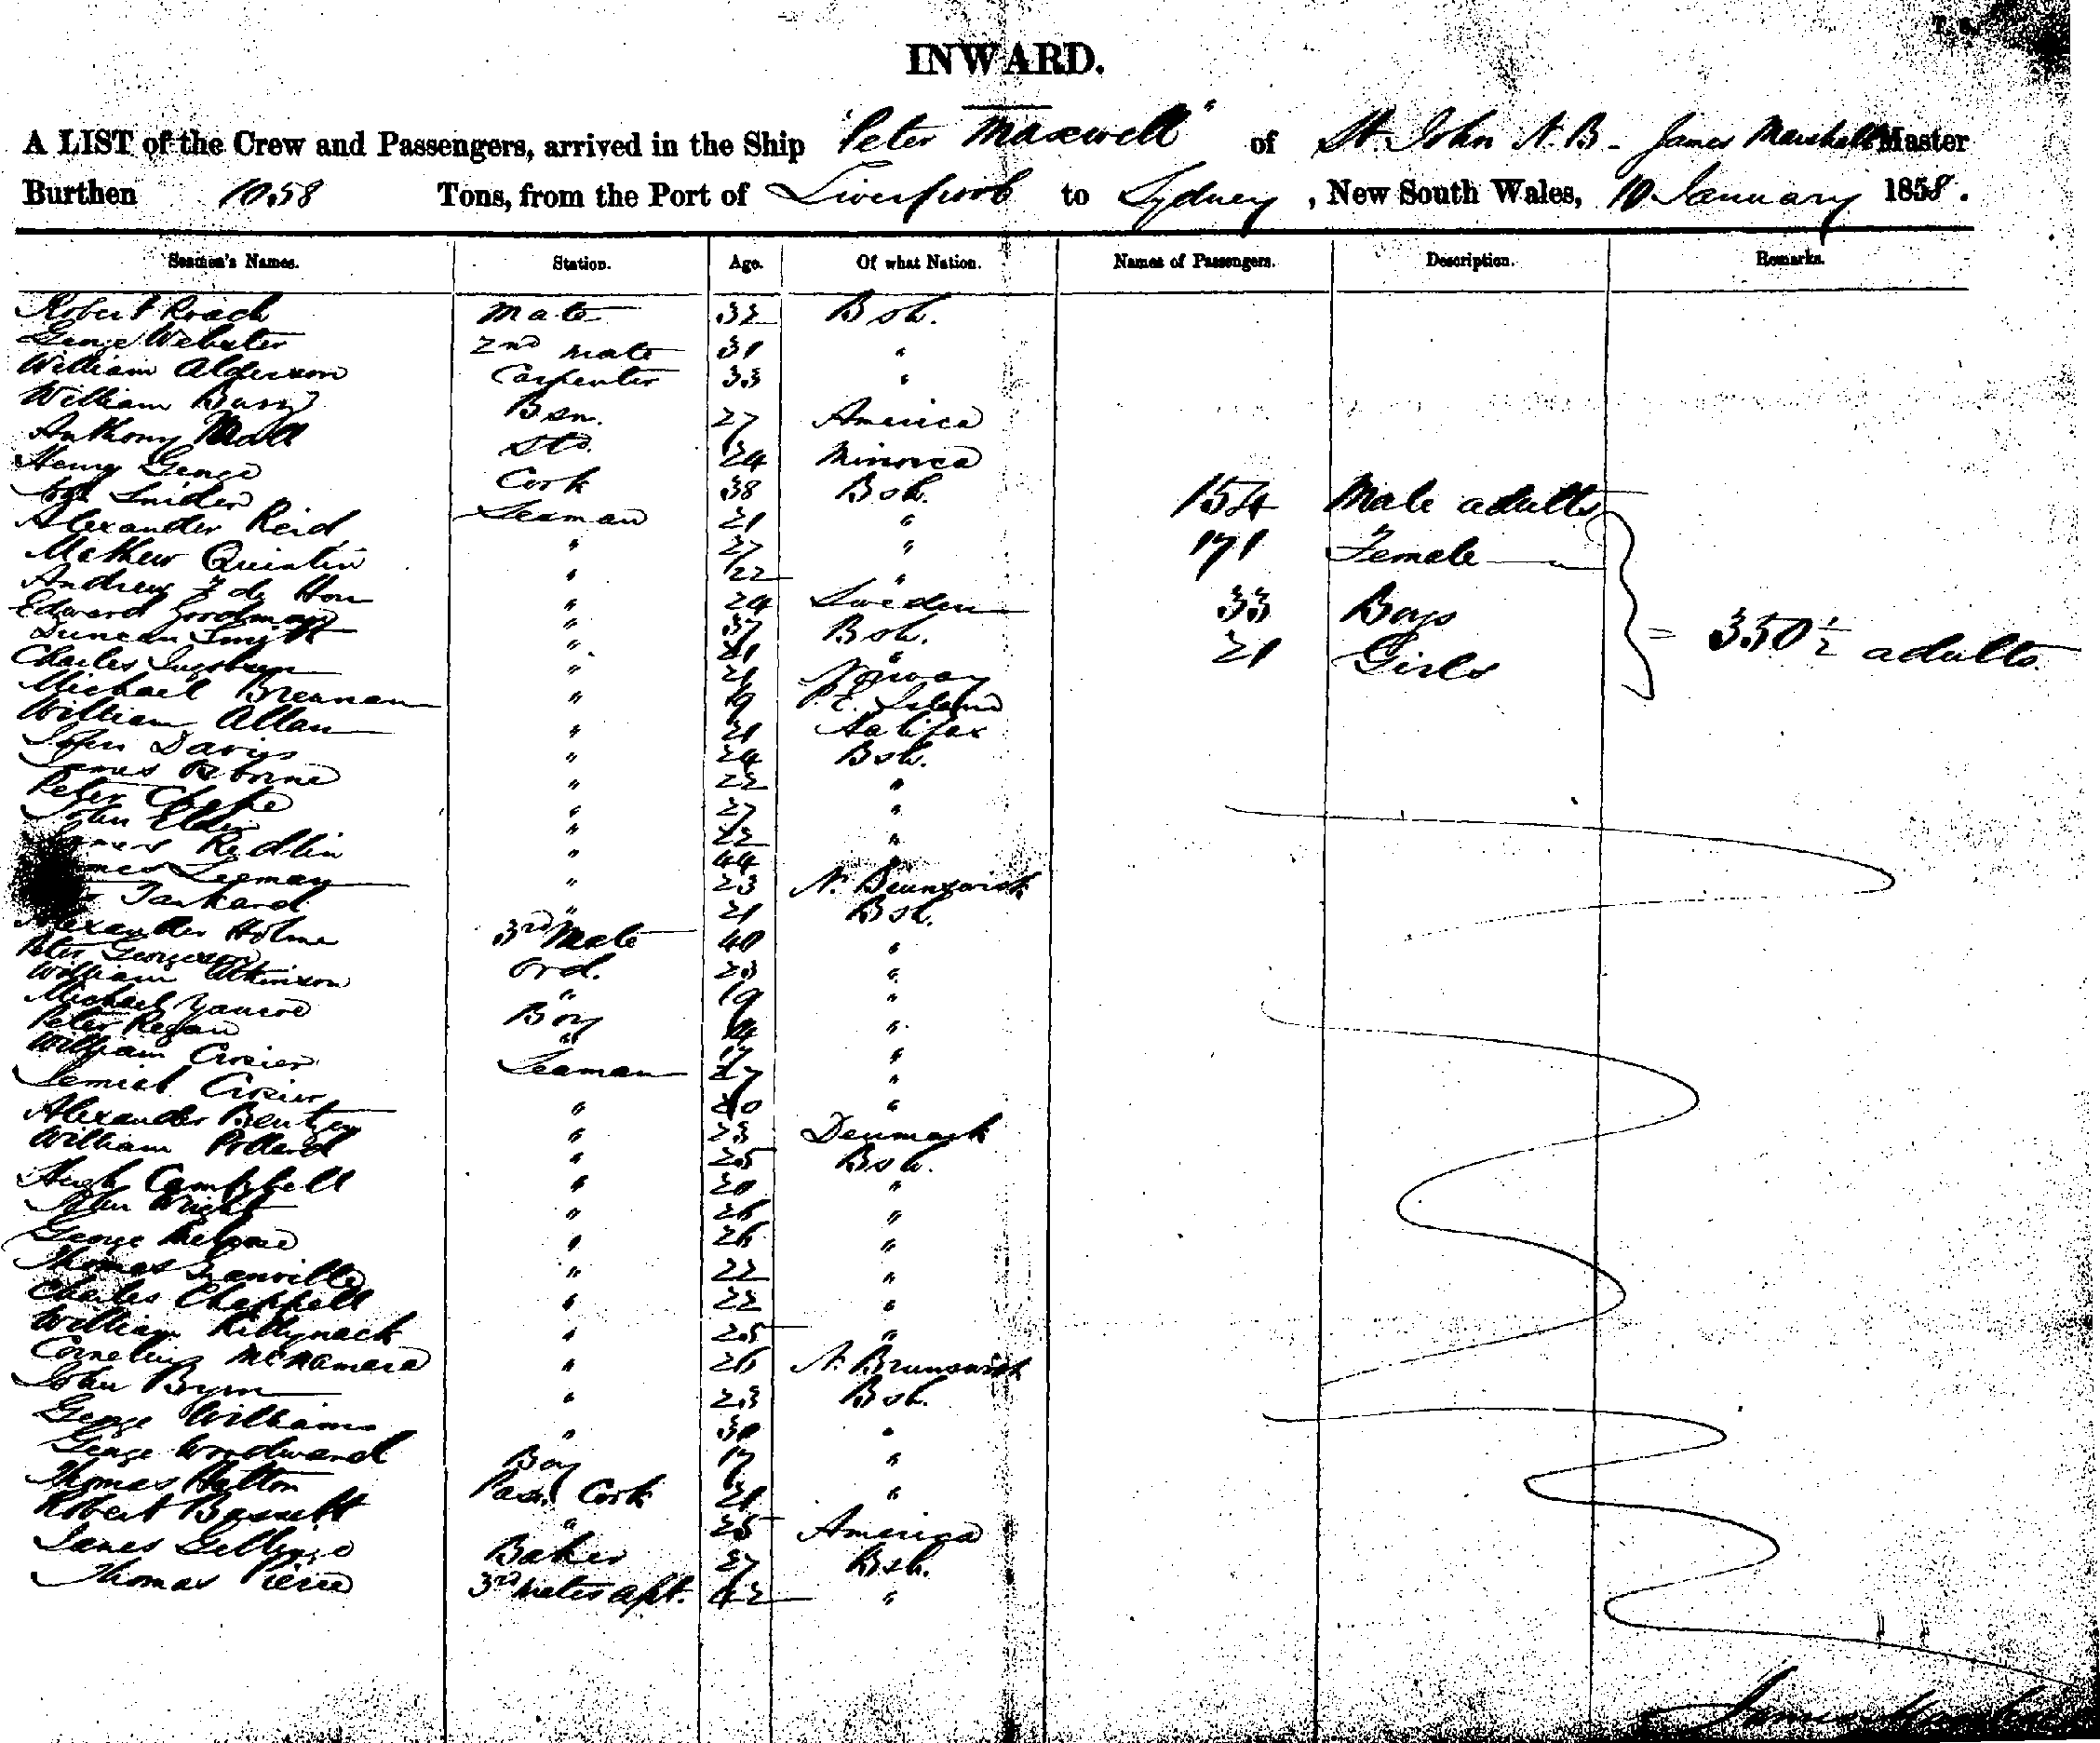 INWARD.
A LIST of the Crew and Passengers, arrived in the Ship "Peter Maxwell" of St. John N. B - James Marshall Master
Burthen 1058 Tons, from the Port of Liverpool to Sydney, New South Wales, 10 January 1858.
Seamen's Names. Station. Age. Of what Nation. Names of Passengers. Description. Remarks.
Robert Roach Mate 32 Bsh.
George Webster 2nd mate 31 "
William Alderson Carpenter 33 "
William Barry Bsn. 27 America
Anthony Std. 24 Minorca
Henry George Cook 38 Bsh.
Snider Seaman 21 "
Alexander Reid " 27 "
Mathew Quintin " 22 "
Andrew " 24 Sweden
Edward Goodman " 37 Bsh.
Duncan Smyth " 21 "
Charles " 21 Norway
Michael Brennan " 19 P. E. Island
William Allan " 21 Halifax
John Davis " 24 Bsh.
James Osborne " 22 "
Peter " 27 "
John Elder " 22 "
Redlin " 44 "
Seeman " 23 N. Brunswick
Tankard " 21 Bsh.
Alexander Holme 3rd Mate 40 "
Peter Georgeson Ord. 23 "
William Atkinson " 19 "
Michael Boy 14 "
Peter Regan " 17 "
William Crosier Seaman 27 "
Crosier " "
Alexander Bentzen " 23 Denmark
William Pollard " 25 Bsh.
Hugh Campbell " 20 "
John Wright " 26 "
George " 26 "
Thomas Granville " 22 "
Charles Chappell " 22 "
William Killynack " 25 "
Cornelius McNamara " 26 N. Brunswick
John Byrn " 23 Bsh.
George Williams " 30 "
George Woodward Boy 17 "
Thomas Hatton Pass. Cook 21 "
Robert Bassett " 25 America
James Baker 27 Bsh.
Thomas Pierce 3rd Mates apt. 42 "
154 Male adults
171 Female —"—
33 Boys
21 Girls
= 350 1/2 adults.
James Marshall